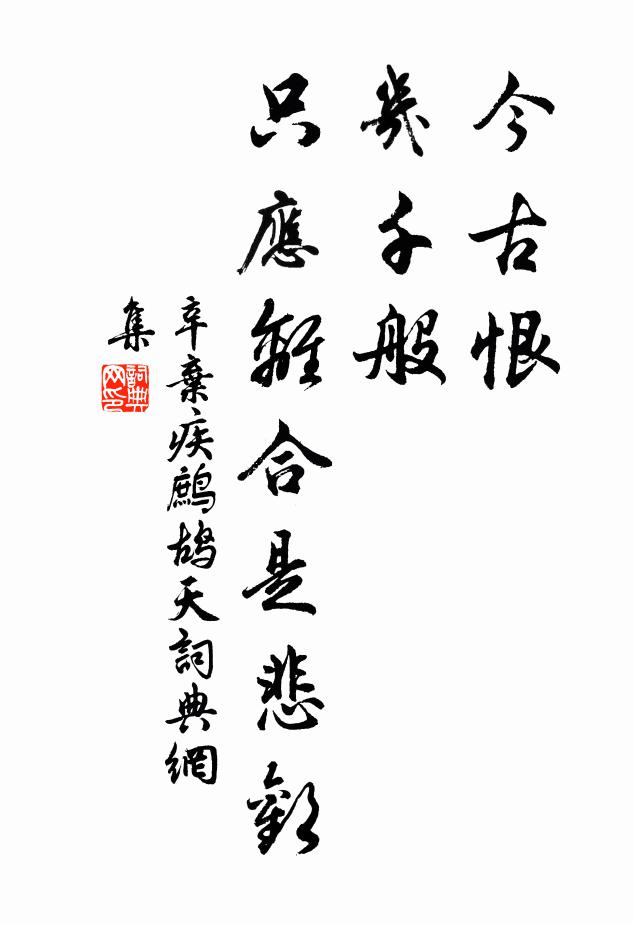 今古恨
幾千般
只應離合是悲歡
辛棄疾鷓鴣天詞典網
集
詞典
网印